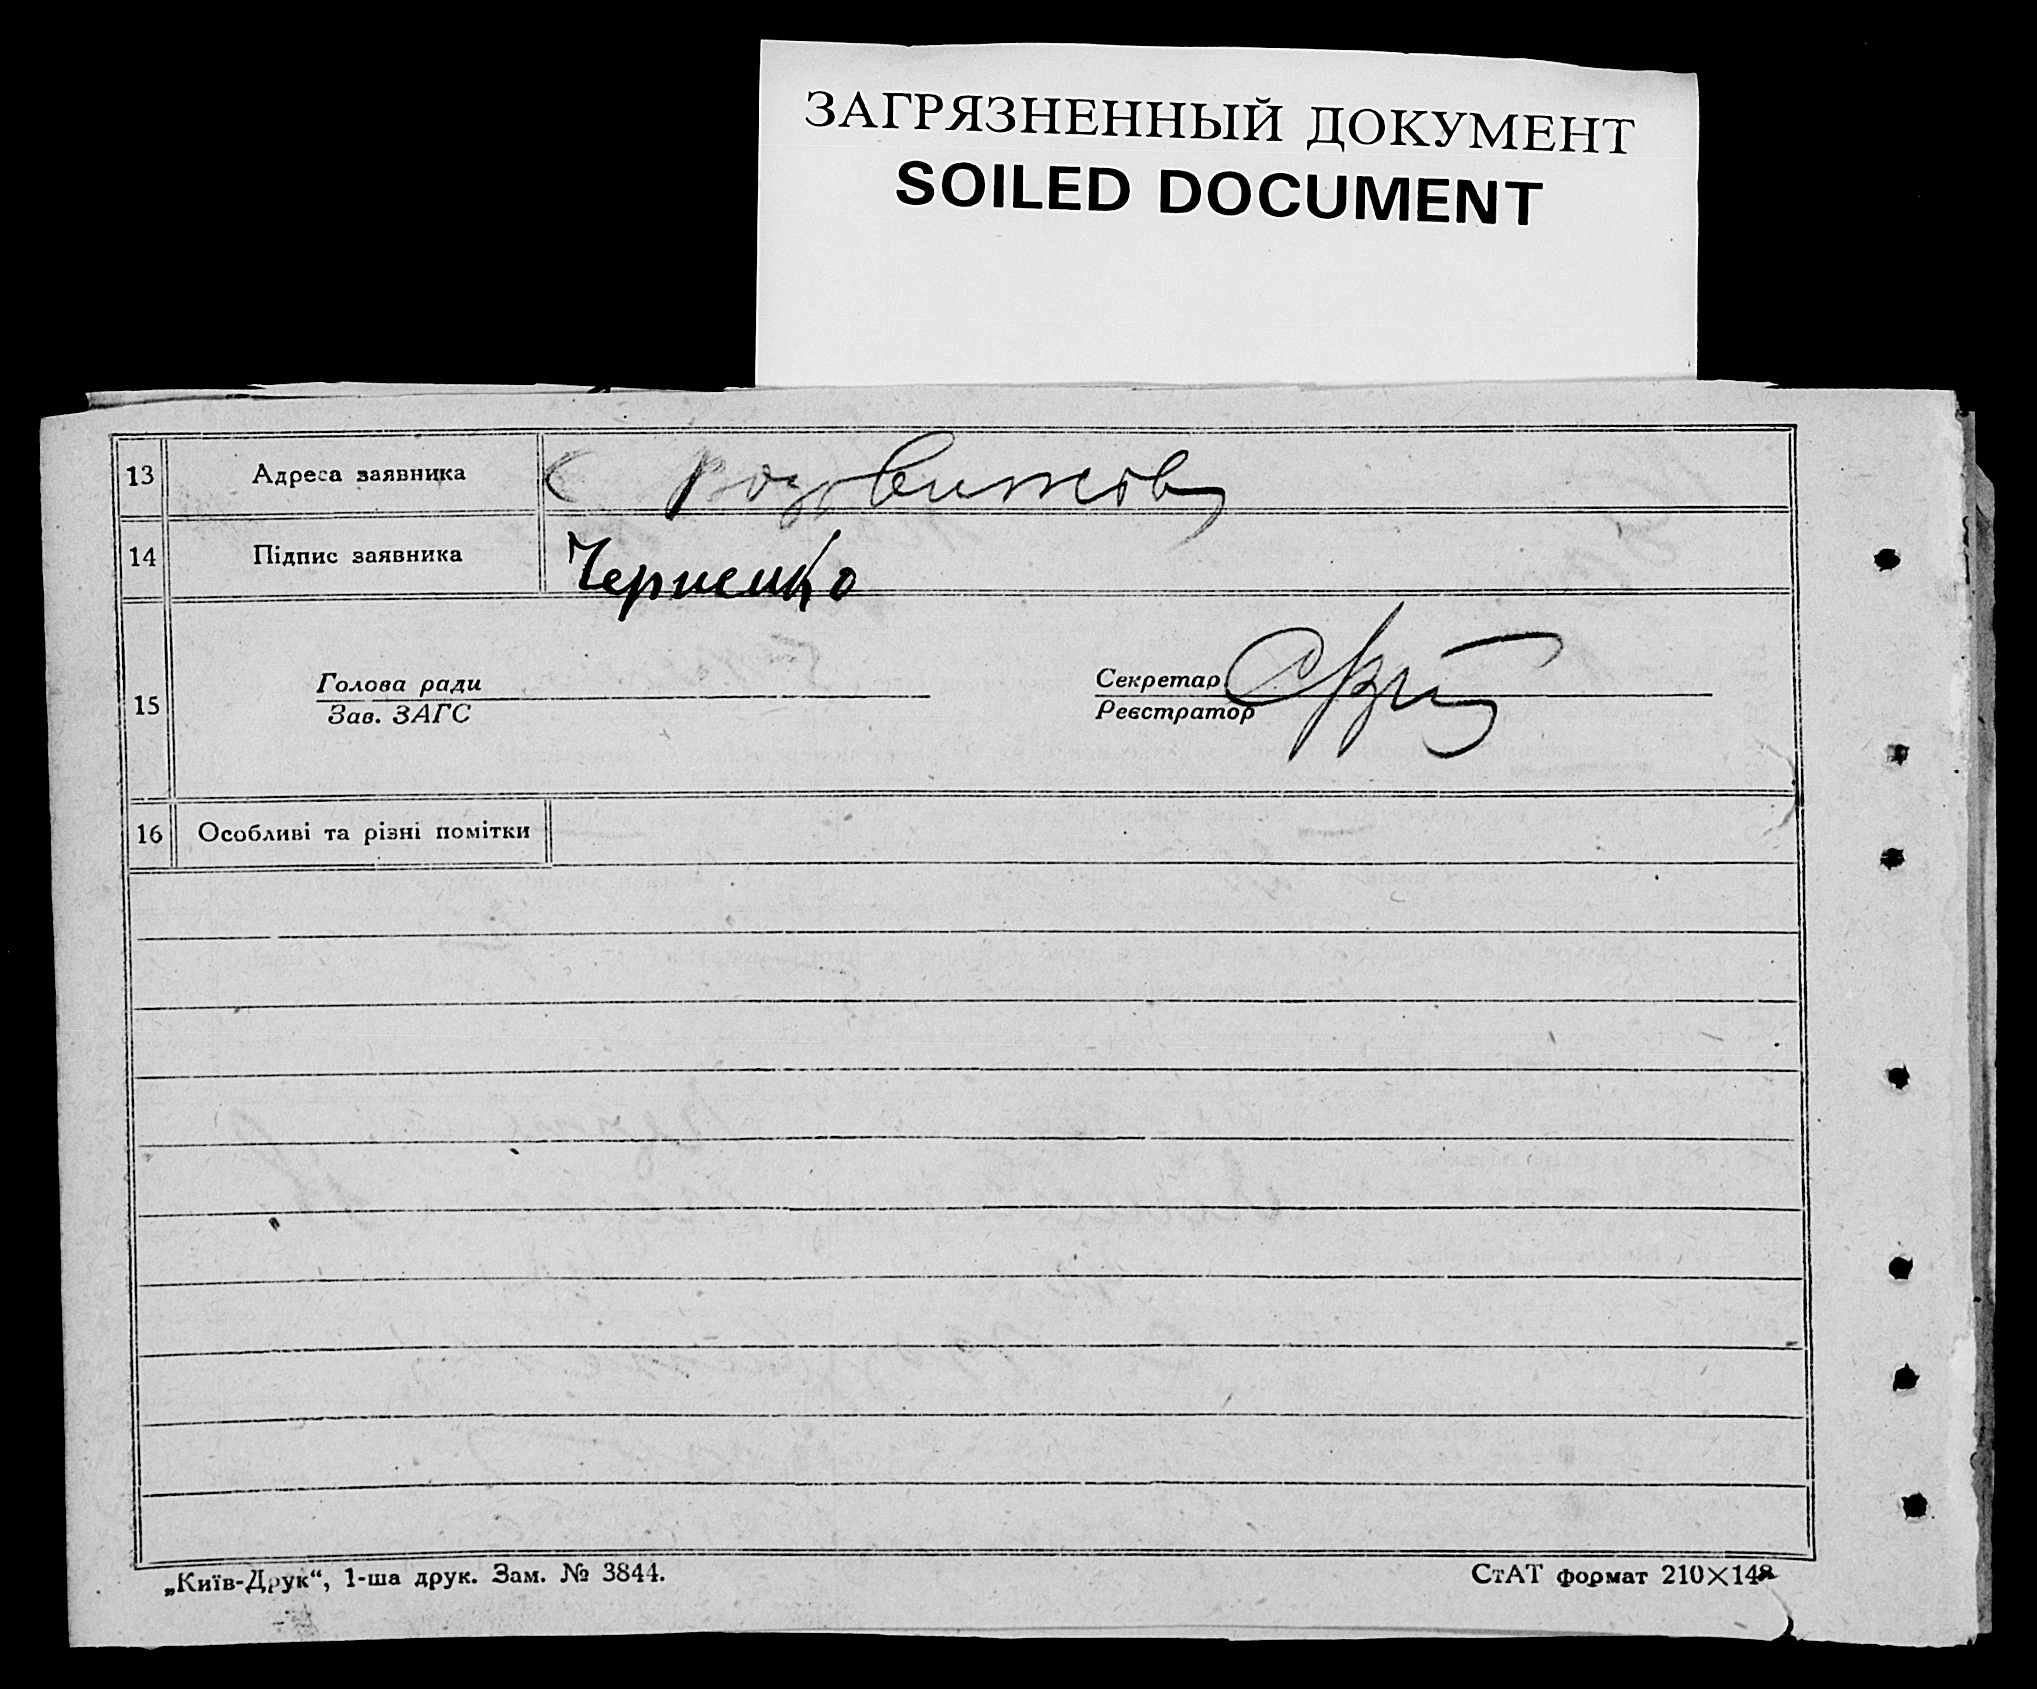 ЗАГРЯЗНЕННЫЙ ДОКУМЕНТ
SOILED DOCUMENT
13 Адреса заявника С
14 Підпис заявника Черненко
15 Голова ради Секретар
Зав. ЗАГС Реєстратор
16 Особливі та різні помітки
„Київ-Друк“, 1-ша друк. Зам. № 3844. СтАТ формат 210×148